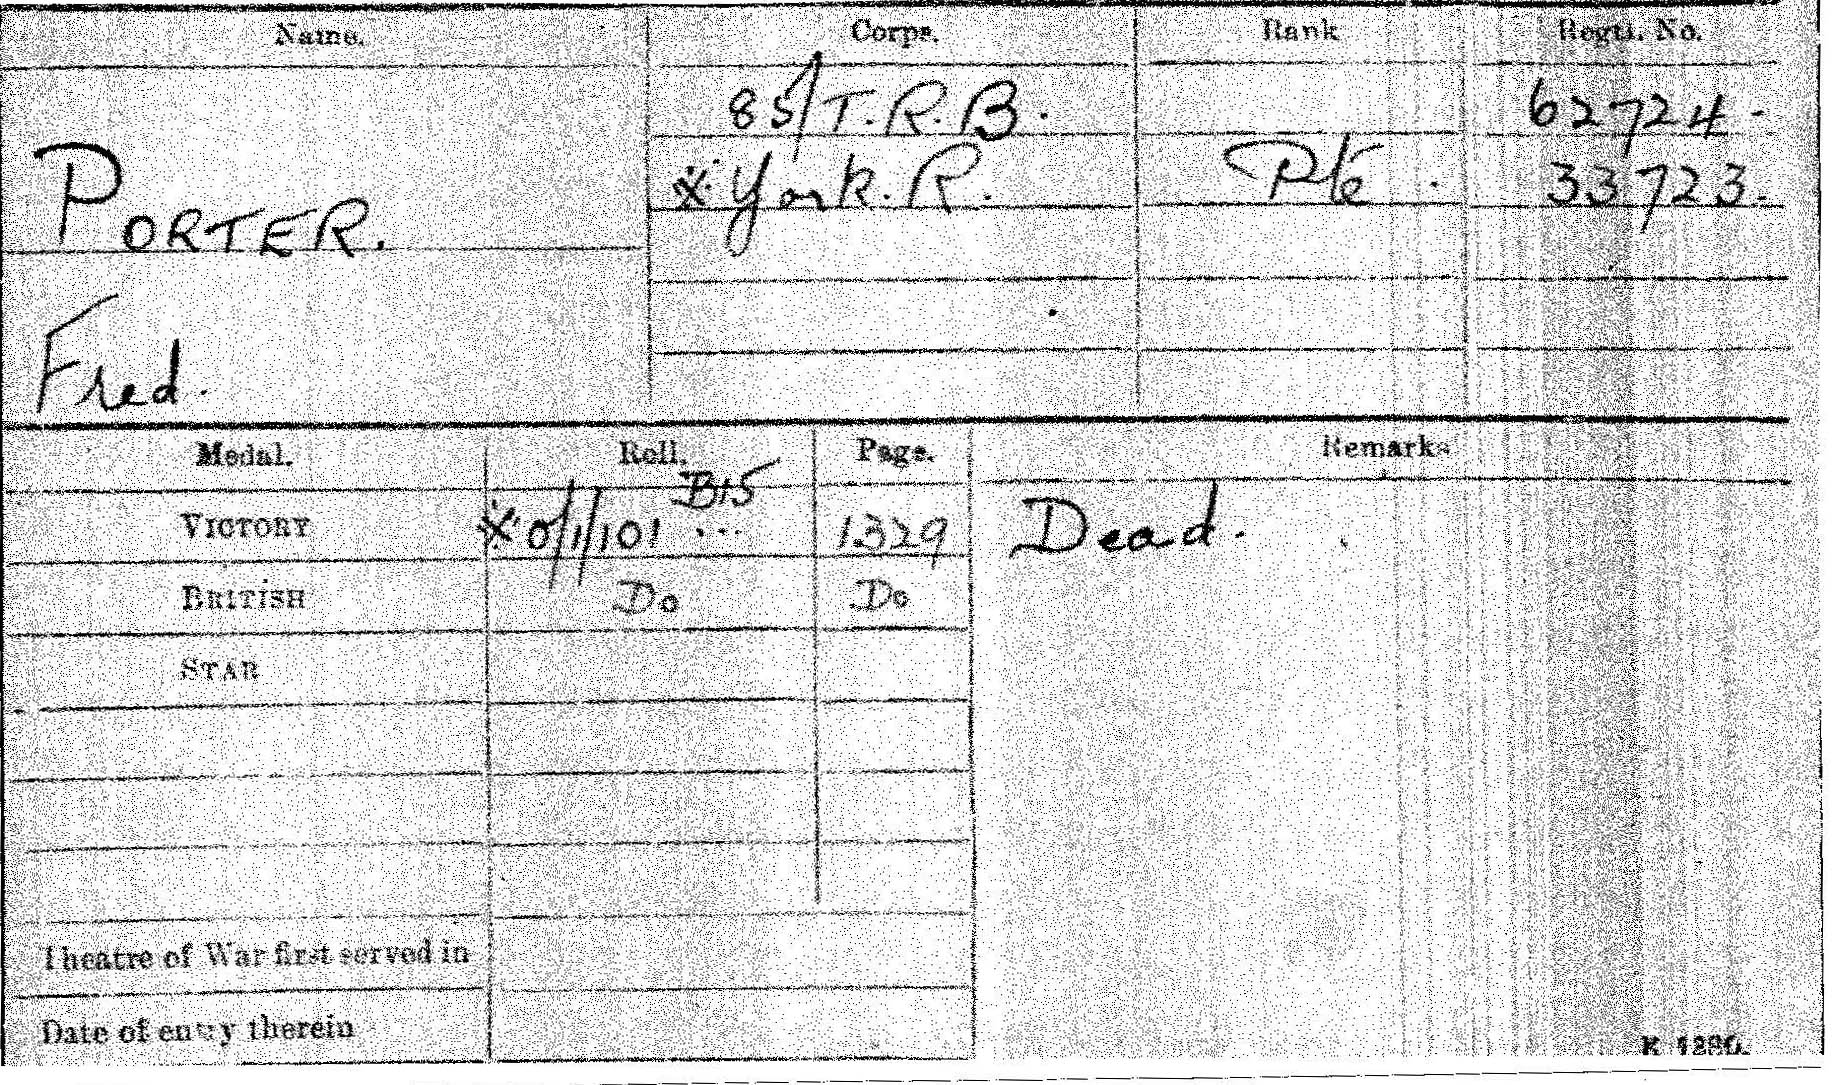 Name. Corps. Rank Regtl. No.
85/T.R.B. 62724.
PORTER. ※ York. R. Pte. 33723.
Fred.
Medal. Roll. Page. Remarks
VICTORY ※ 0/1/101 B15 ... 1329 Dead.
BRITISH Do Do
STAR
Theatre of War first served in
Date of entry therein
K 1380.